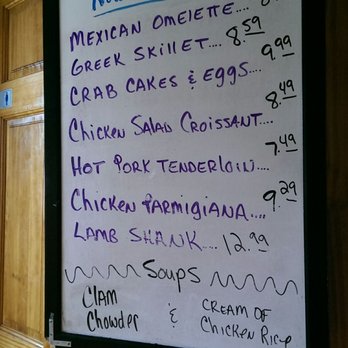 MEXICAN OMELETTE....
GREEK SKILLET.... 8.59
CRAB CAKES & EGGS.... 9.99
Chicken Salad Croissant.... 8.49
HOT PORK TENDERLOIN.... 7.49
Chicken PARMIGIANA.... 9.29
LAMB SHANK.... 12.99
Soups
CLAM Chowder & CREAM OF Chicken Rice